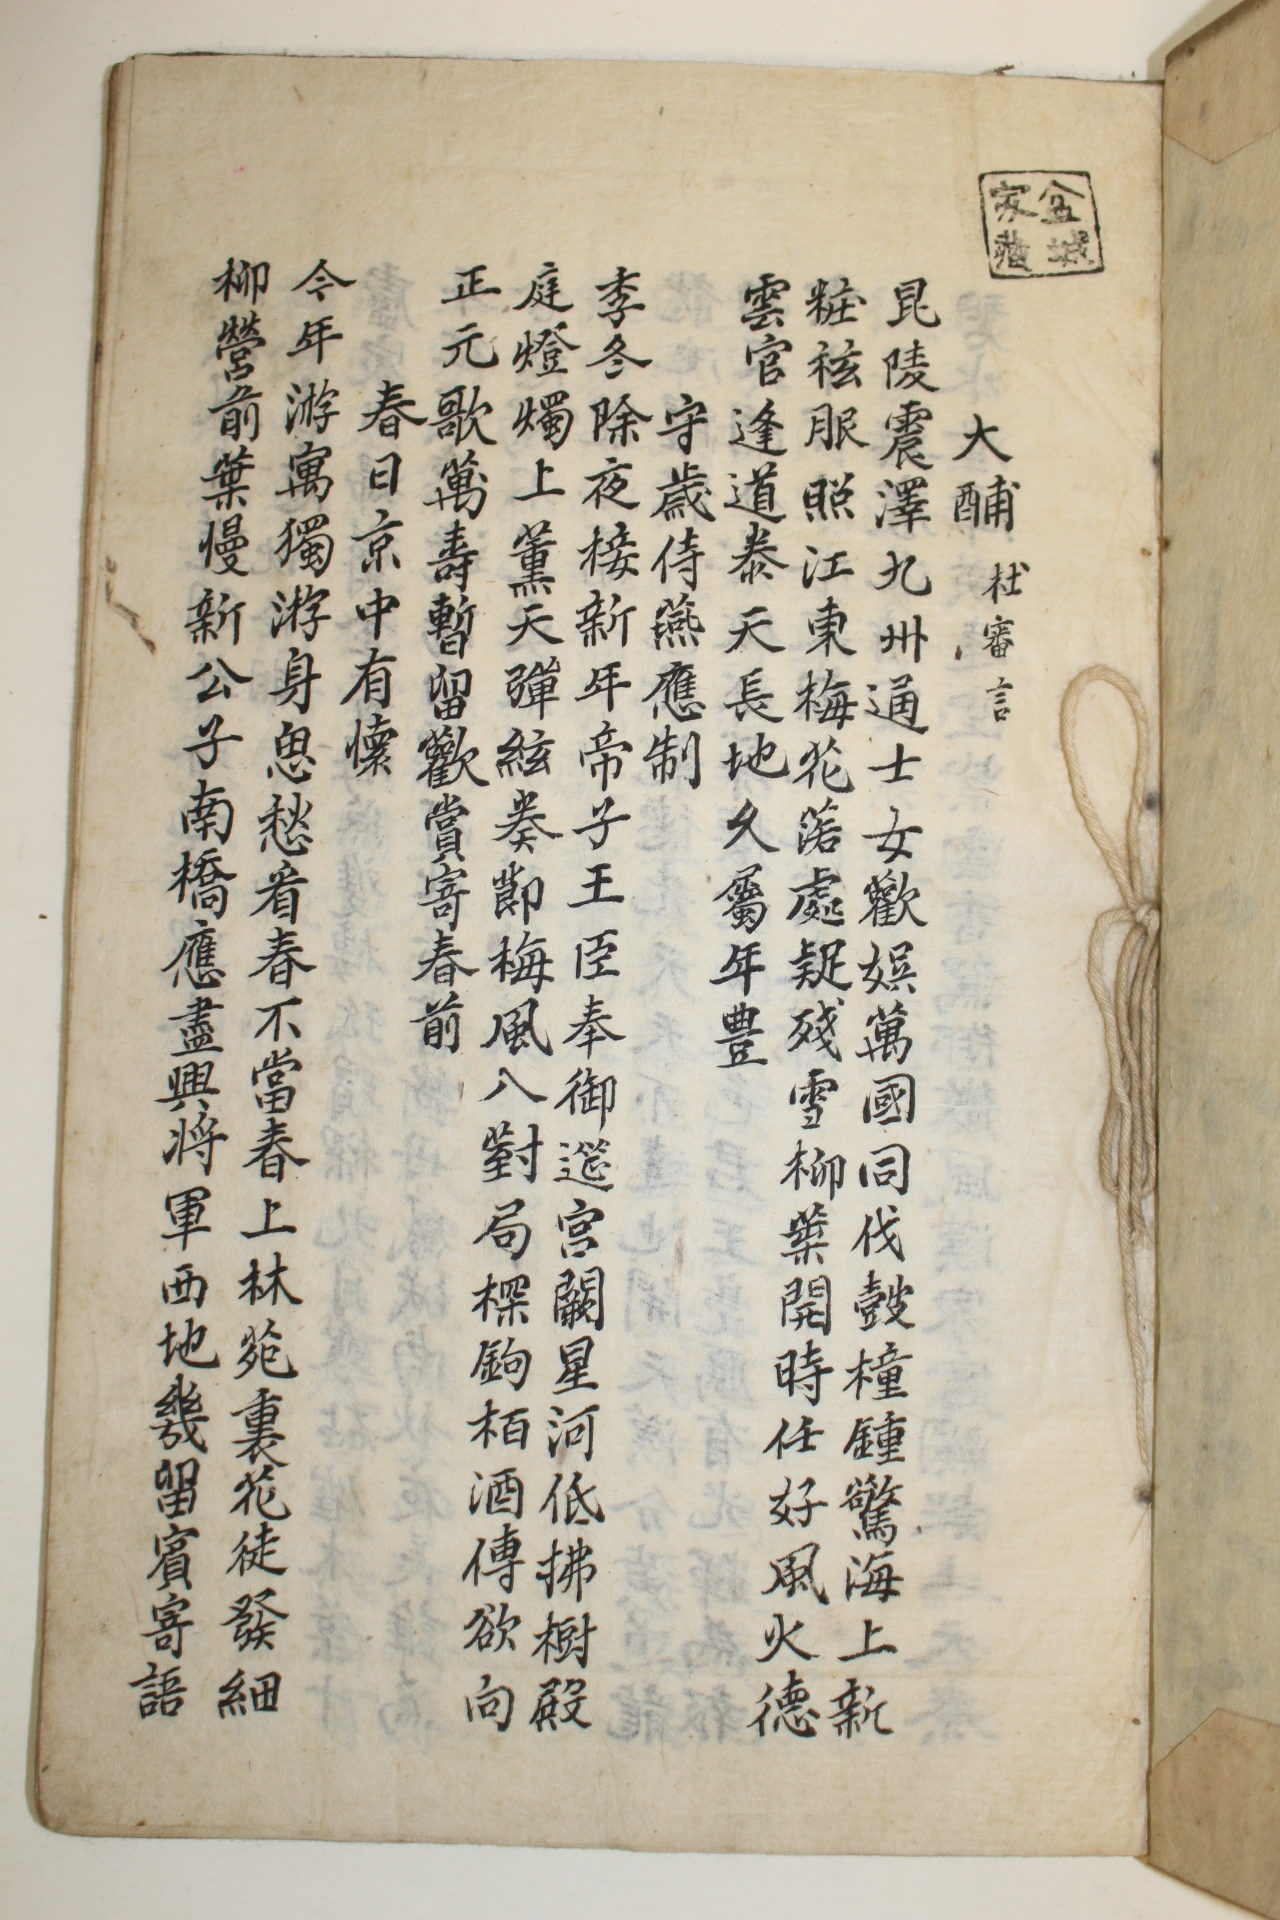 盆城
家藏
大酺 杜審言
昆陵震澤九州通士女歡娛萬國同伐鼓橦鍾驚海上新
粧袨服照江東梅花落處疑殘雪柳葉開時任好風火德
雲官逢道泰天長地久屬年豊
守歲侍燕應制
季冬除夜接新年帝子王臣奉御筵宮闕星河低拂樹殿
庭燈燭上薰天彈絃奏節梅風入對局探鉤栢酒傳欲向
正元歌萬壽暫留歡賞寄春前
春日京中有懷
今年游寓獨游身思愁看春不當春上林苑裏花徒發細
柳營前葉慢新公子南橋應盡興將軍西地幾留賓寄語